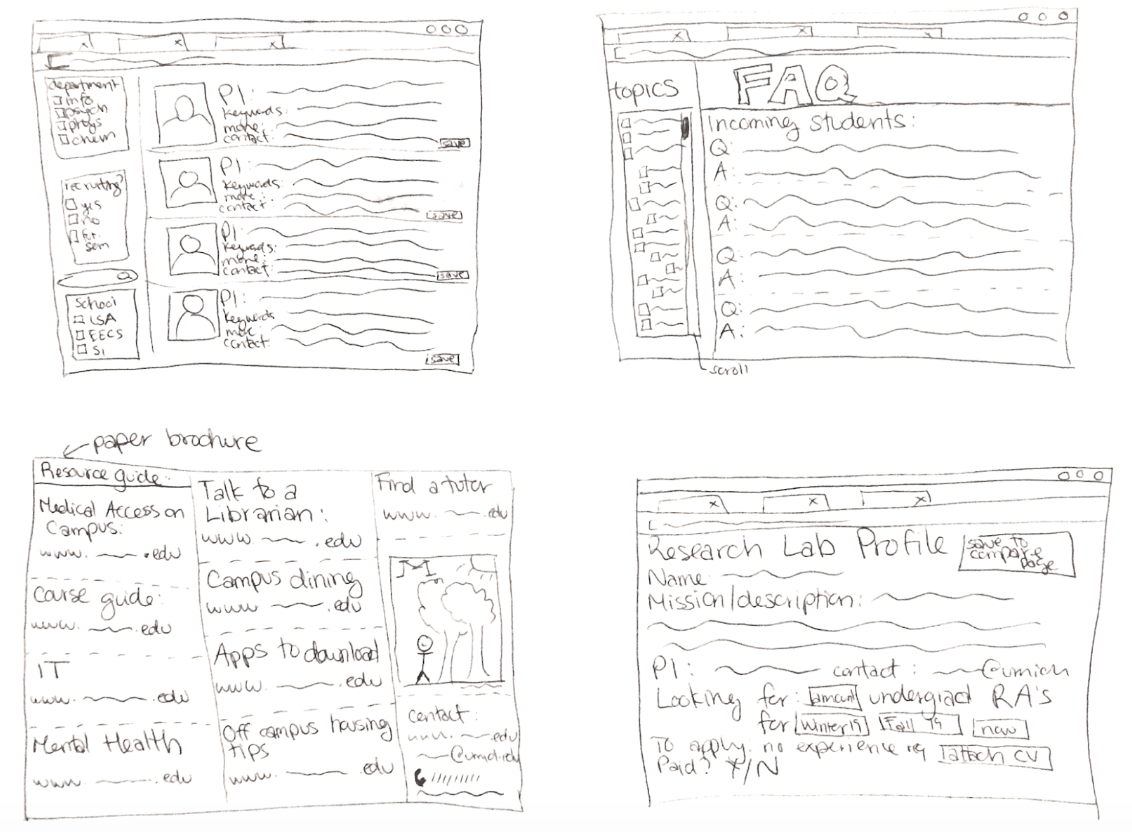 department
info
psych
phys
chem
recruiting?
yes
no
fut.
sem
School
LSA
EECS
SI
PI:
keywords:
more:
contact:
save
PI:
keywords:
more:
contact:
save
PI:
keywords:
more:
contact:
save
PI:
keywords
more:
contact:
save
topics
FAQ
Incoming students:
Q:
A:
Q:
A:
Q:
A:
Q:
A:
scroll
paper brochure
Resource guide:
Medical Access on
Campus:
www. .edu
Course guide:
www. .edu
IT
www. .edu
Mental Health
www. .edu
Talk to a
Librarian:
www. .edu
Campus dining
www. .edu
Apps to download
www. .edu
Off campus housing
tips
www. .edu
Find a tutor
www. .edu
M
Contact:
www. .edu
Research Lab Profile
save to
compare
page
Name
Mission/description:
PI: contact: @umich
Looking for: amount undergrad RA's
for Winter 19 Fall '19 now
To apply: no experience attach CV
Paid? Y/N